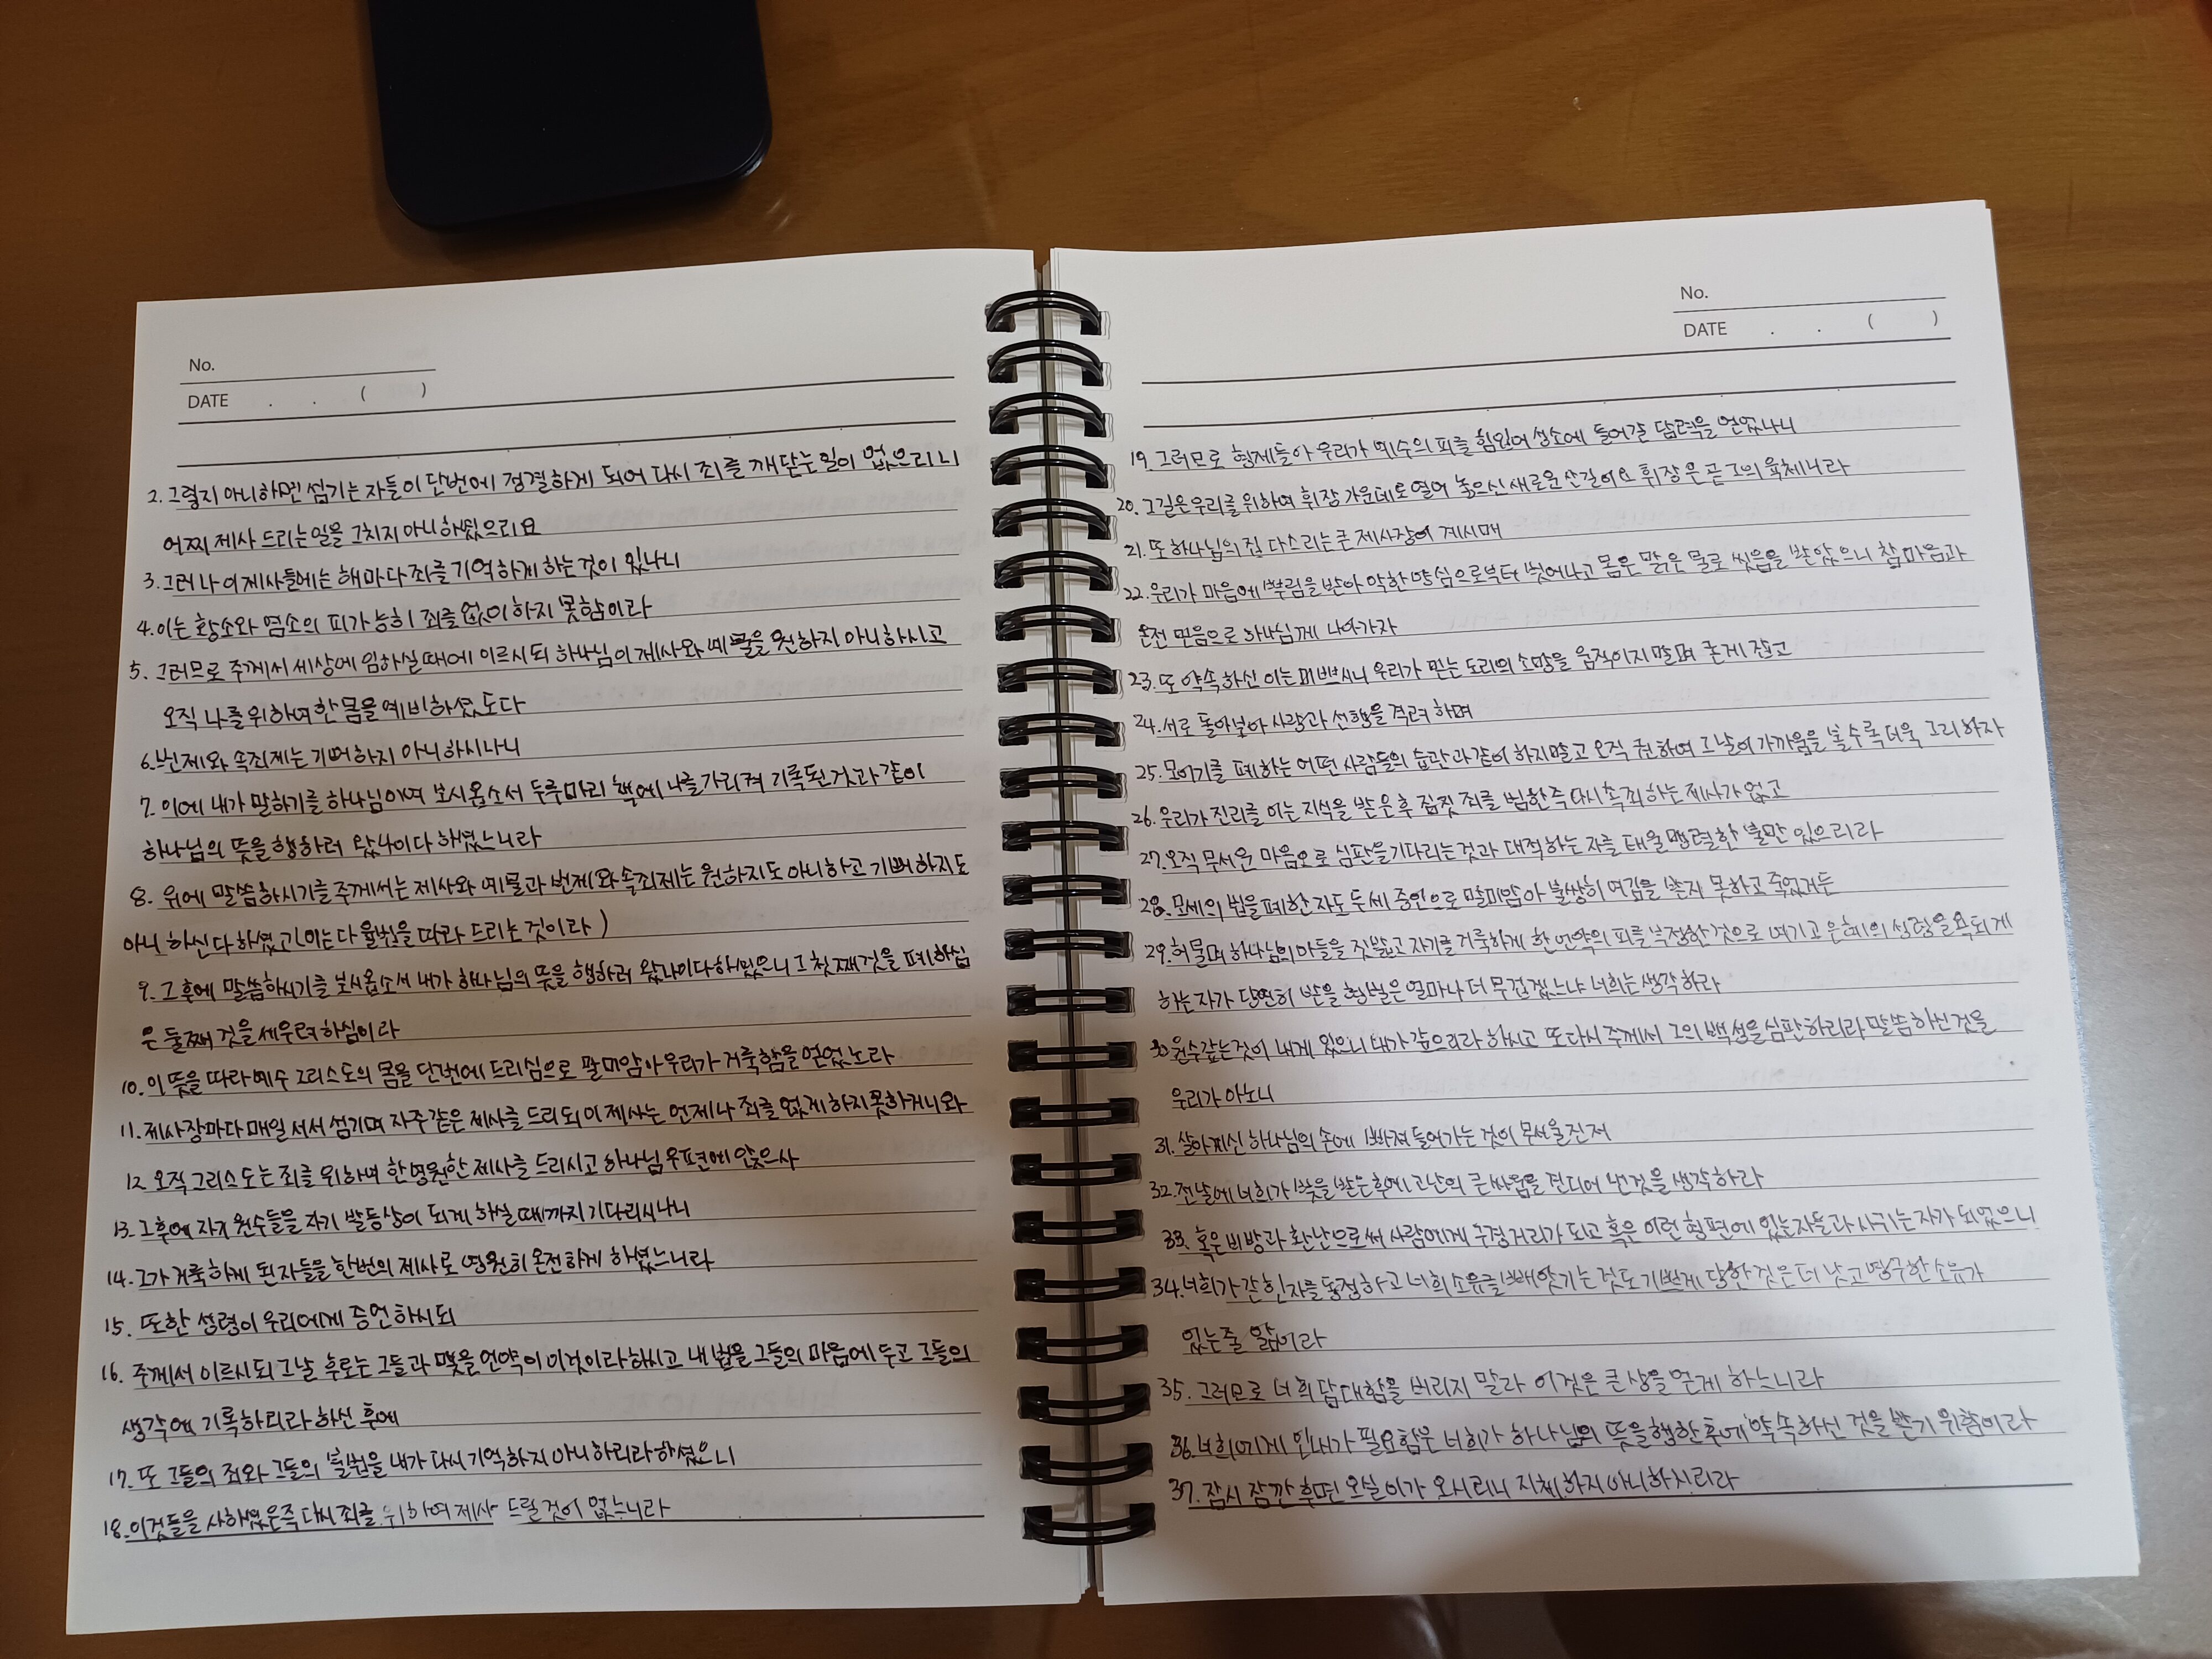 No.
DATE . . ( )
2. 그렇지 아니하면 섬기는 자들이 단번에 정결하게 되어 다시 죄를 깨닫는 일이 없으리니
어찌 제사 드리는 일을 그치지 아니하였으리요
3. 그러나 이 제사들에는 해마다 죄를 기억하게 하는 것이 있나니
4. 이는 황소와 염소의 피가 능히 죄를 없이 하지 못함이라
5. 그러므로 주께서 세상에 임하실 때에 이르시되 하나님이 제사와 예물을 원하지 아니하시고
오직 나를 위하여 한 몸을 예비하셨도다
6. 번제와 속죄제는 기뻐하지 아니하시나니
7. 이에 내가 말하기를 하나님이여 보시옵소서 두루마리 책에 나를 가리켜 기록된 것과 같이
하나님의 뜻을 행하러 왔나이다 하셨느니라
8. 위에 말씀하시기를 주께서는 제사와 예물과 번제와 속죄제는 원하지도 아니하고 기뻐하지도
아니 하신다 하셨고 (이는 다 율법을 따라 드리는 것이라)
9. 그 후에 말씀하시기를 보시옵소서 내가 하나님의 뜻을 행하러 왔나이다 하셨으니 그 첫째 것을 폐하심
은 둘째 것을 세우려 하심이라
10. 이 뜻을 따라 예수 그리스도의 몸을 단번에 드리심으로 말미암아 우리가 거룩함을 얻었노라
11. 제사장마다 매일 서서 섬기며 자주 같은 제사를 드리되 이 제사는 언제나 죄를 없게 하지 못하거니와
12. 오직 그리스도는 죄를 위하여 한 영원한 제사를 드리시고 하나님 우편에 앉으사
13. 그 후에 자기 원수들을 자기 발등상이 되게 하실 때까지 기다리시나니
14. 그가 거룩하게 된 자들을 한번의 제사로 영원히 온전하게 하셨느니라
15. 또한 성령이 우리에게 증언하시되
16. 주께서 이르시되 그날 후로는 그들과 맺을 언약이 이것이라 하시고 내 법을 그들의 마음에 두고 그들의
생각에 기록하리라 하신 후에
17. 또 그들의 죄와 그들의 불법을 내가 다시 기억하지 아니하리라 하셨으니
18. 이것들을 사하셨은즉 다시 죄를 위하여 제사 드릴 것이 없느니라
No.
DATE . . ( )
19. 그러므로 형제들아 우리가 예수의 피를 힘입어 성소에 들어갈 담력을 얻었나니
20. 그 길은 우리를 위하여 휘장 가운데로 열어 놓으신 새로운 산 길이요 휘장은 곧 그의 육체니라
21. 또 하나님의 집 다스리는 큰 제사장이 계시매
22. 우리가 마음에 뿌림을 받아 악한 양심으로부터 벗어나고 몸은 맑은 물로 씻음을 받았으니 참 마음과
온전 믿음으로 하나님께 나아가자
23. 또 약속하신 이는 미쁘시니 우리가 믿는 도리의 소망을 움직이지 말며 굳게 잡고
24. 서로 돌아보아 사랑과 선행을 격려하며
25. 모이기를 폐하는 어떤 사람들의 습관과 같이 하지 말고 오직 권하여 그날이 가까움을 볼수록 더욱 그리하자
26. 우리가 진리를 아는 지식을 받은 후 짐짓 죄를 범한즉 다시 속죄하는 제사가 없고
27. 오직 무서운 마음으로 심판을 기다리는 것과 대적하는 자를 태울 맹렬한 불만 있으리라
28. 모세의 법을 폐한 자도 두세 증인으로 말미암아 불쌍히 여김을 받지 못하고 죽었거든
29. 하물며 하나님의 아들을 짓밟고 자기를 거룩하게 한 언약의 피를 부정한 것으로 여기고 은혜의 성령을 욕되게
하는 자가 당연히 받을 형벌은 얼마나 더 무겁겠느냐 너희는 생각하라
30. 원수 갚는 것이 내게 있으니 내가 갚으리라 하시고 또 다시 주께서 그의 백성을 심판하리라 말씀하신 것을
우리가 아노니
31. 살아계신 하나님의 손에 빠져 들어가는 것이 무서울진저
32. 전날에 너희가 빛을 받은 후에 고난의 큰 싸움을 견디어 낸 것을 생각하라
33. 혹은 비방과 환난으로써 사람에게 구경거리가 되고 혹은 이런 형편에 있는 자들과 사귀는 자가 되었으니
34. 너희가 갇힌 자를 동정하고 너희 소유를 빼앗기는 것도 기쁘게 당한 것은 더 낫고 영구한 소유가
있는 줄 앎이라
35. 그러므로 너희 담대함을 버리지 말라 이것은 큰 상을 얻게 하느니라
36. 너희에게 인내가 필요함은 너희가 하나님의 뜻을 행한 후에 약속하신 것을 받기 위함이라
37. 잠시 잠깐 후면 오실 이가 오시리니 지체하지 아니하시리라